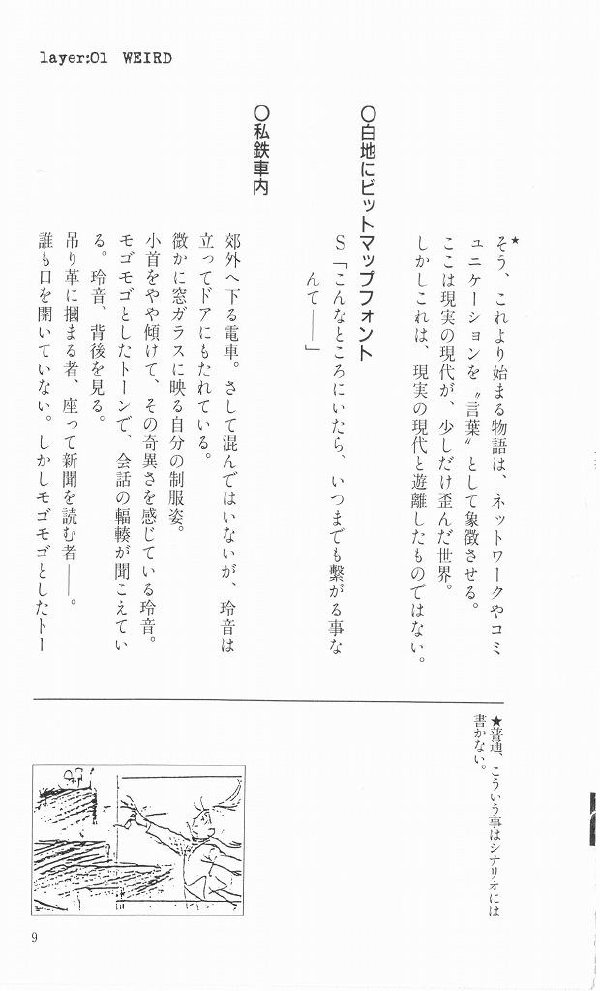 layer:01 WEIRD
★
そう、これより始まる物語は、ネットワークやコミ
ュニケーションを〝言葉〟として象徴させる。
ここは現実の現代が、少しだけ歪んだ世界。
しかしこれは、現実の現代と遊離したものではない。
○白地にビットマップフォント
S「こんなところにいたら、いつまでも繫がる事な
んて――」
○私鉄車内
郊外へ下る電車。さして混んではいないが、玲音は
立ってドアにもたれている。
微かに窓ガラスに映る自分の制服姿。
小首をやや傾けて、その奇異さを感じている玲音。
モゴモゴとしたトーンで、会話の輻輳が聞こえてい
る。玲音、背後を見る。
吊り革に摑まる者、座って新聞を読む者――。
誰も口を開いていない。しかしモゴモゴとしたトー
★普通、こういう事はシナリオには
書かない。
9